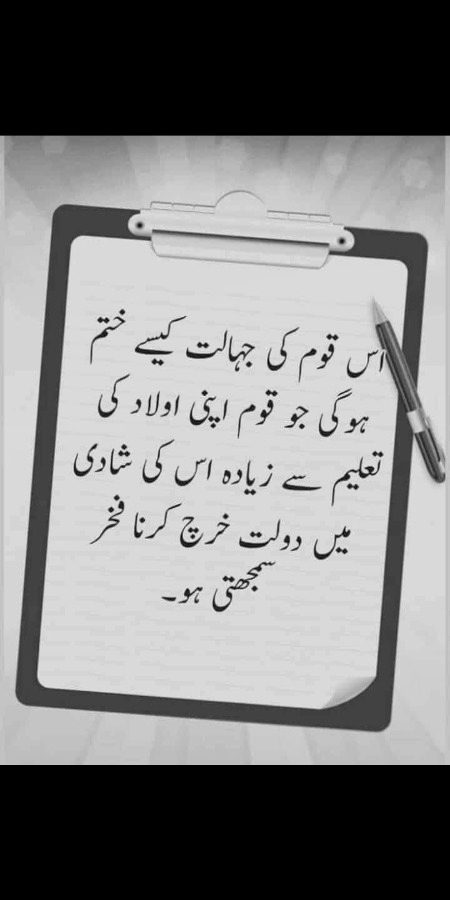 اس قوم کی جہالت کیسے ختم
ہوگی جو قوم اپنی اولاد کی
تعلیم سے زیادہ اس کی شادی
میں دولت خرچ کرنا فخر
سمجھتی ہو۔